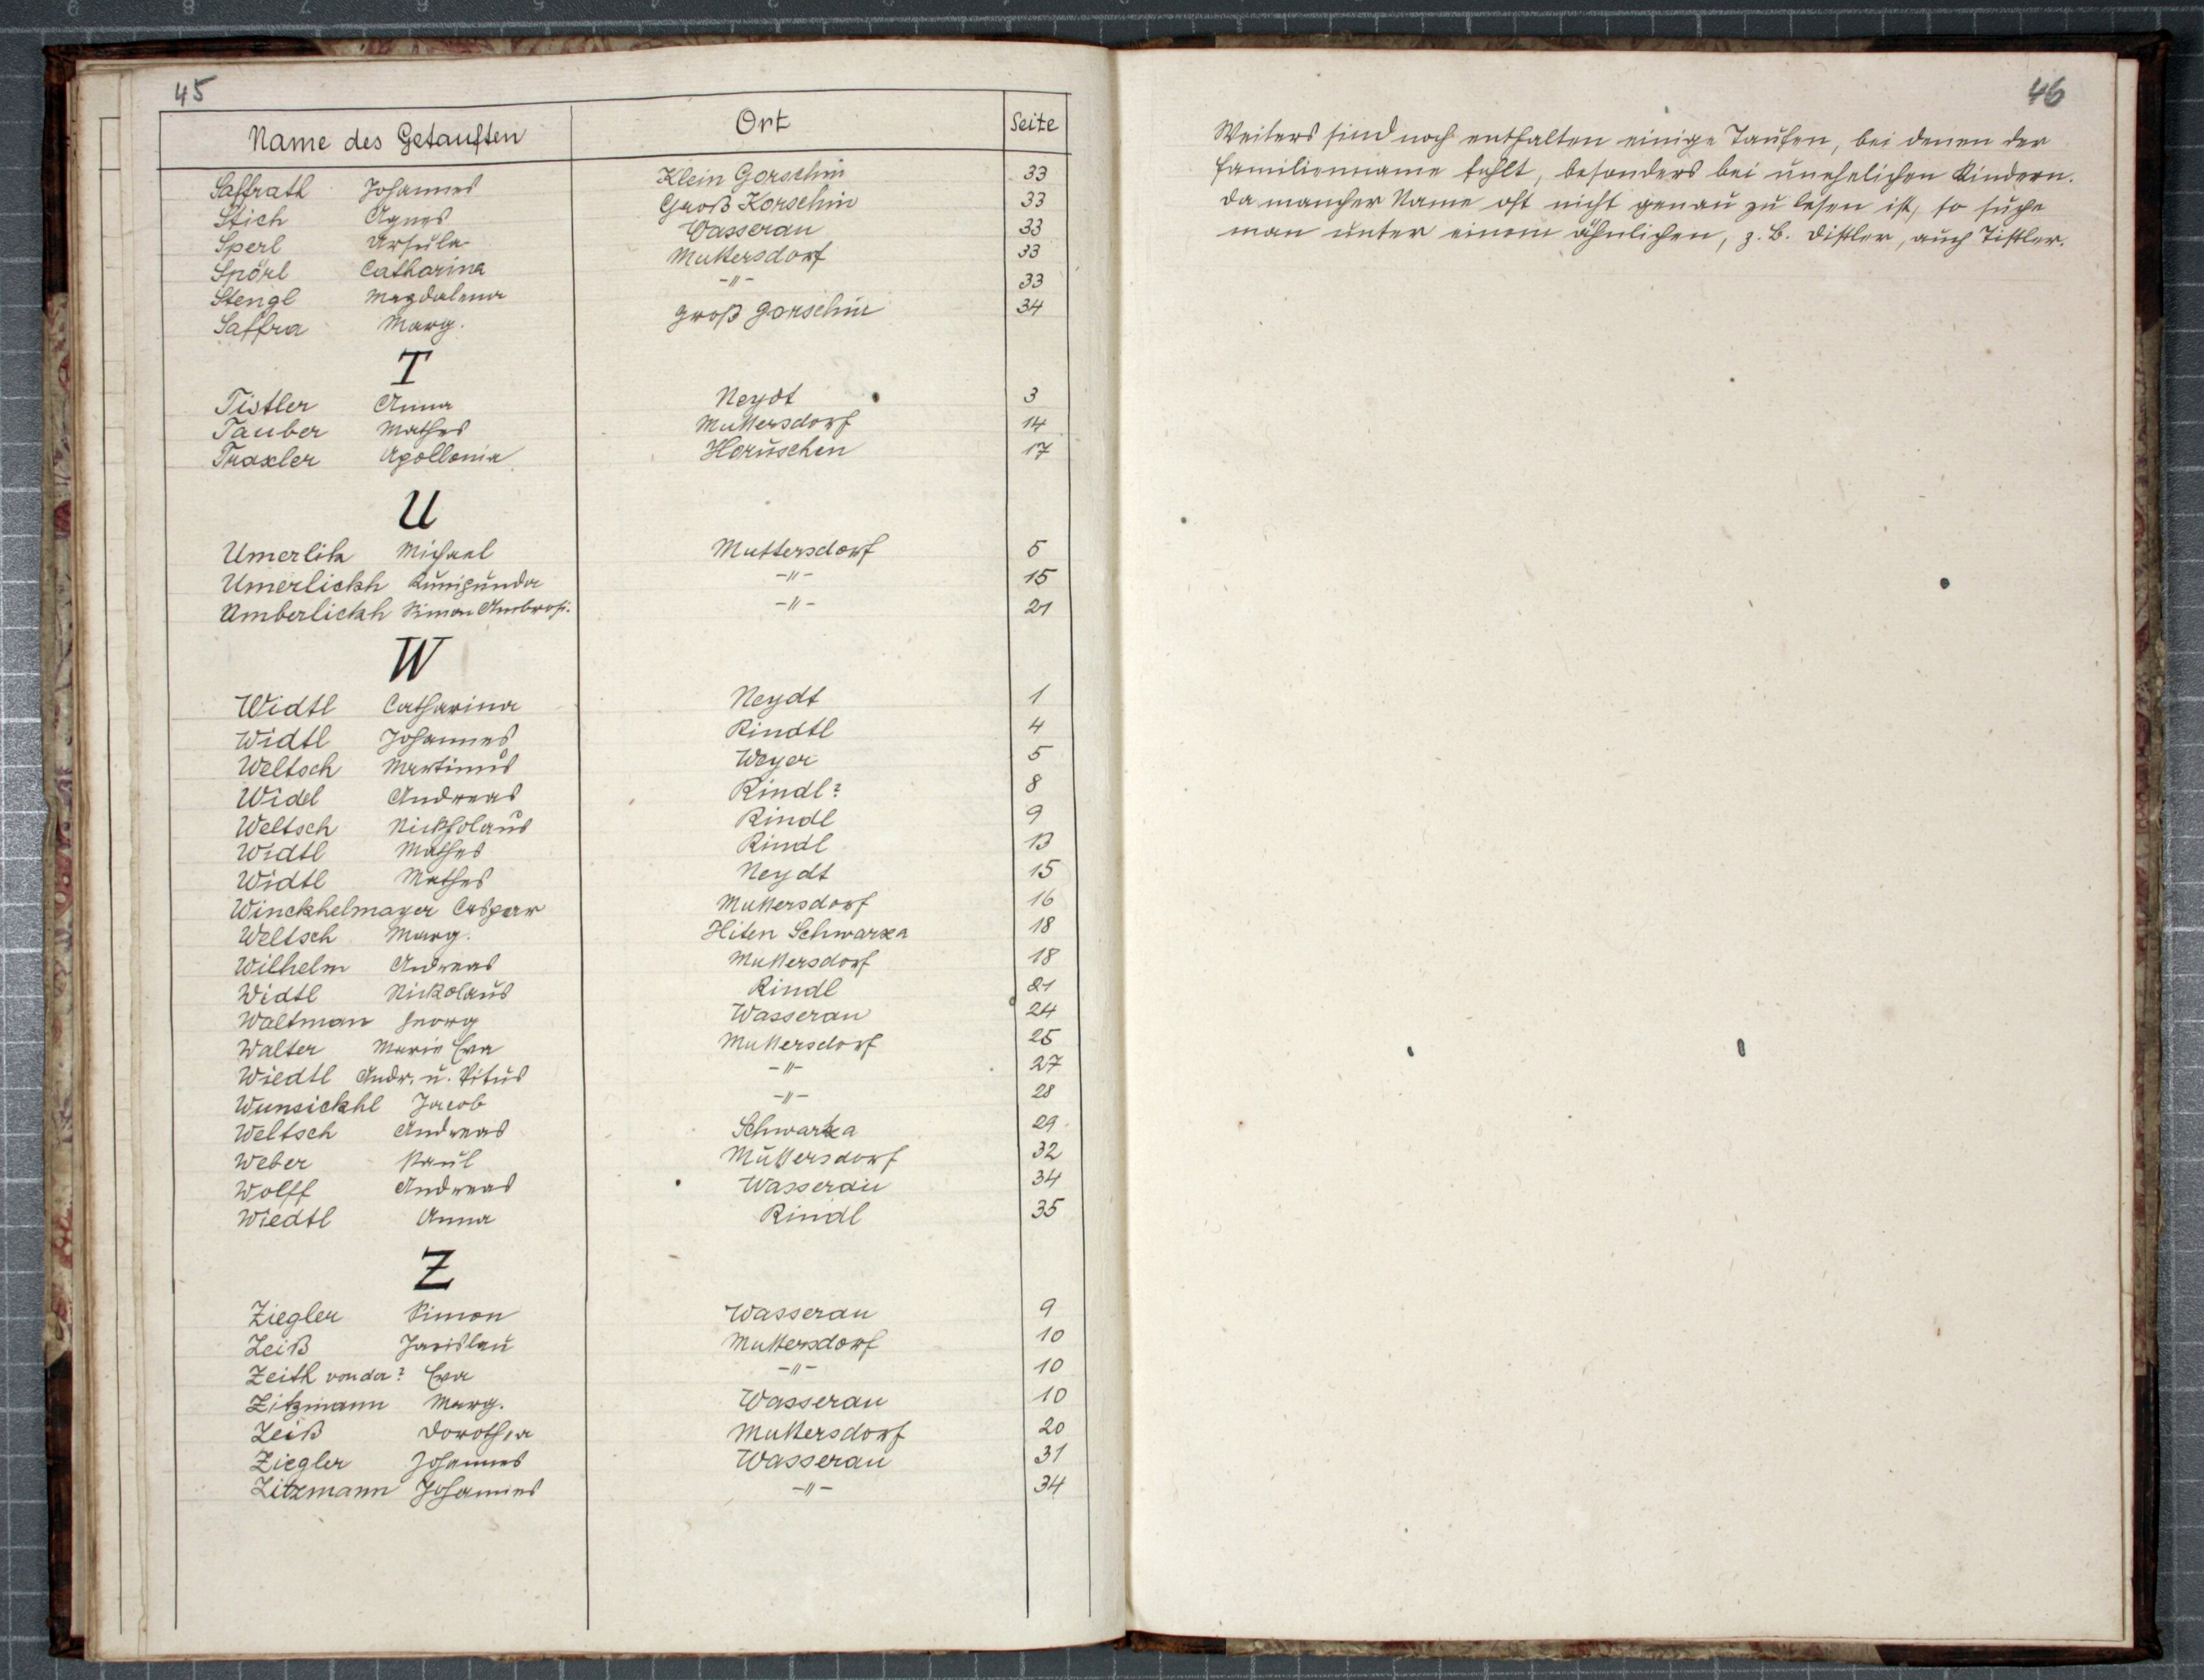 45
Name des Getauften Ort Seite
Saffrath Johannes Klein Gorschin 33
Stich Agnes Groß Korschin 33
Sperl Ursula Wasserau 33
Snörl Catharina Muttersdorf 33
Stengl Magdalena -"- 33
Saffra Marg. Groß Gorschin 34
T
Tistler Anna Neydt 3
Tauber Mathes Muttersdorf 14
Traxler Apollonia Horuschen 17
U
Umerlik Michael Muttersdorf 5
Umerlickh Kunigunda -"- 15
Umberlickh Simon Ambrosi. -"- 21
W
Widtl Catharina Neydt 1
Widtl Johannes Rindtl 4
Weltsch Martinus Weyer 5
Widel Andreas Rindl? 8
Weltsch Nickholaus Rindl 9
Widtl Mathes Rindl 13
Widtl Mathes Neydt 15
Winckhelmayer Caspar Muttersdorf 16
Weltsch Marg. Hiten Schwarza 18
Wilhelm Andreas Muttersdorf 18
Widtl Nickolaus Rindl 21
Waltman Georg Wasserau 24
Walter Maria Eva Muttersdorf 25
Wiedtl Andr. u. Vitus -"- 27
Wunsickhl Jacob -"- 28
Weltsch Andreas Schwarza 29
Weber Paul Muttersdorf 32
Wolff Andreas Wasserau 34
Wiedtl Anna Rindl 35
Z
Ziegler Simon Wasserau 9
Zeiß Jarislau Muttersdorf 10
Zeitl von der? Eva -"- 10
Zitzmann Marg. Wasserau 10
Zeiß Dorothea Muttersdorf 20
Ziegler Johannes Wasserau 31
Zitzmann Johannes -"- 34
46
Weiters sind noch enthalten einige Taufen, bei denen der
Familienname fehlt, besonders bei unehelichen Kindern.
Da mancher Name oft nicht genau zu lesen ist, so suche
man unter einem ähnlichen, z. B. Distler, auch Tistler.